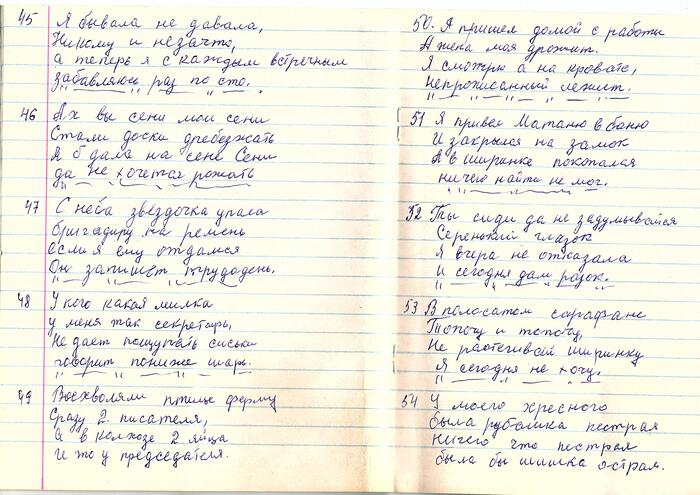 45 Я бывала не давала,
Никому и незачто,
а теперь я с каждым встречным
забавляюсь раз по сто.
46 Ах вы сени мои сени
Стали доски дребезжать
Я б дала на сене Сени
да не хочется рожать
47 С неба звёздочка упала
бригадиру на ремень
если я ему отдамся
Он запишет трудодень.
48 У кого какая милка
у меня так секретарь,
Не дает пощупать сиськи
говорит пониже шарь.
49 Восхволяли птице ферму
Сразу 2 писателя,
а в колхозе 2 яйца
и то у председателя.
50. Я пришел домой с работы
А жена моя дрожит.
Я смотрю а на кровате,
Непрописанный лежит.
51 Я привел Матаню в баню
И закрылся на замок
А в ширинке покопался
ничего найти не мог.
52 Ты сиди да не задумывайся
Серенький глазок
Я вчера не отказала
И сегодня дам разок.
53 В полосатом сарафане
Топочу и топочу,
Не растегивай ширинку
Я сегодня не хочу.
54 У моего хресного
была рубашка пестрая
Ничего что пестрая
была бы шишка вострая.